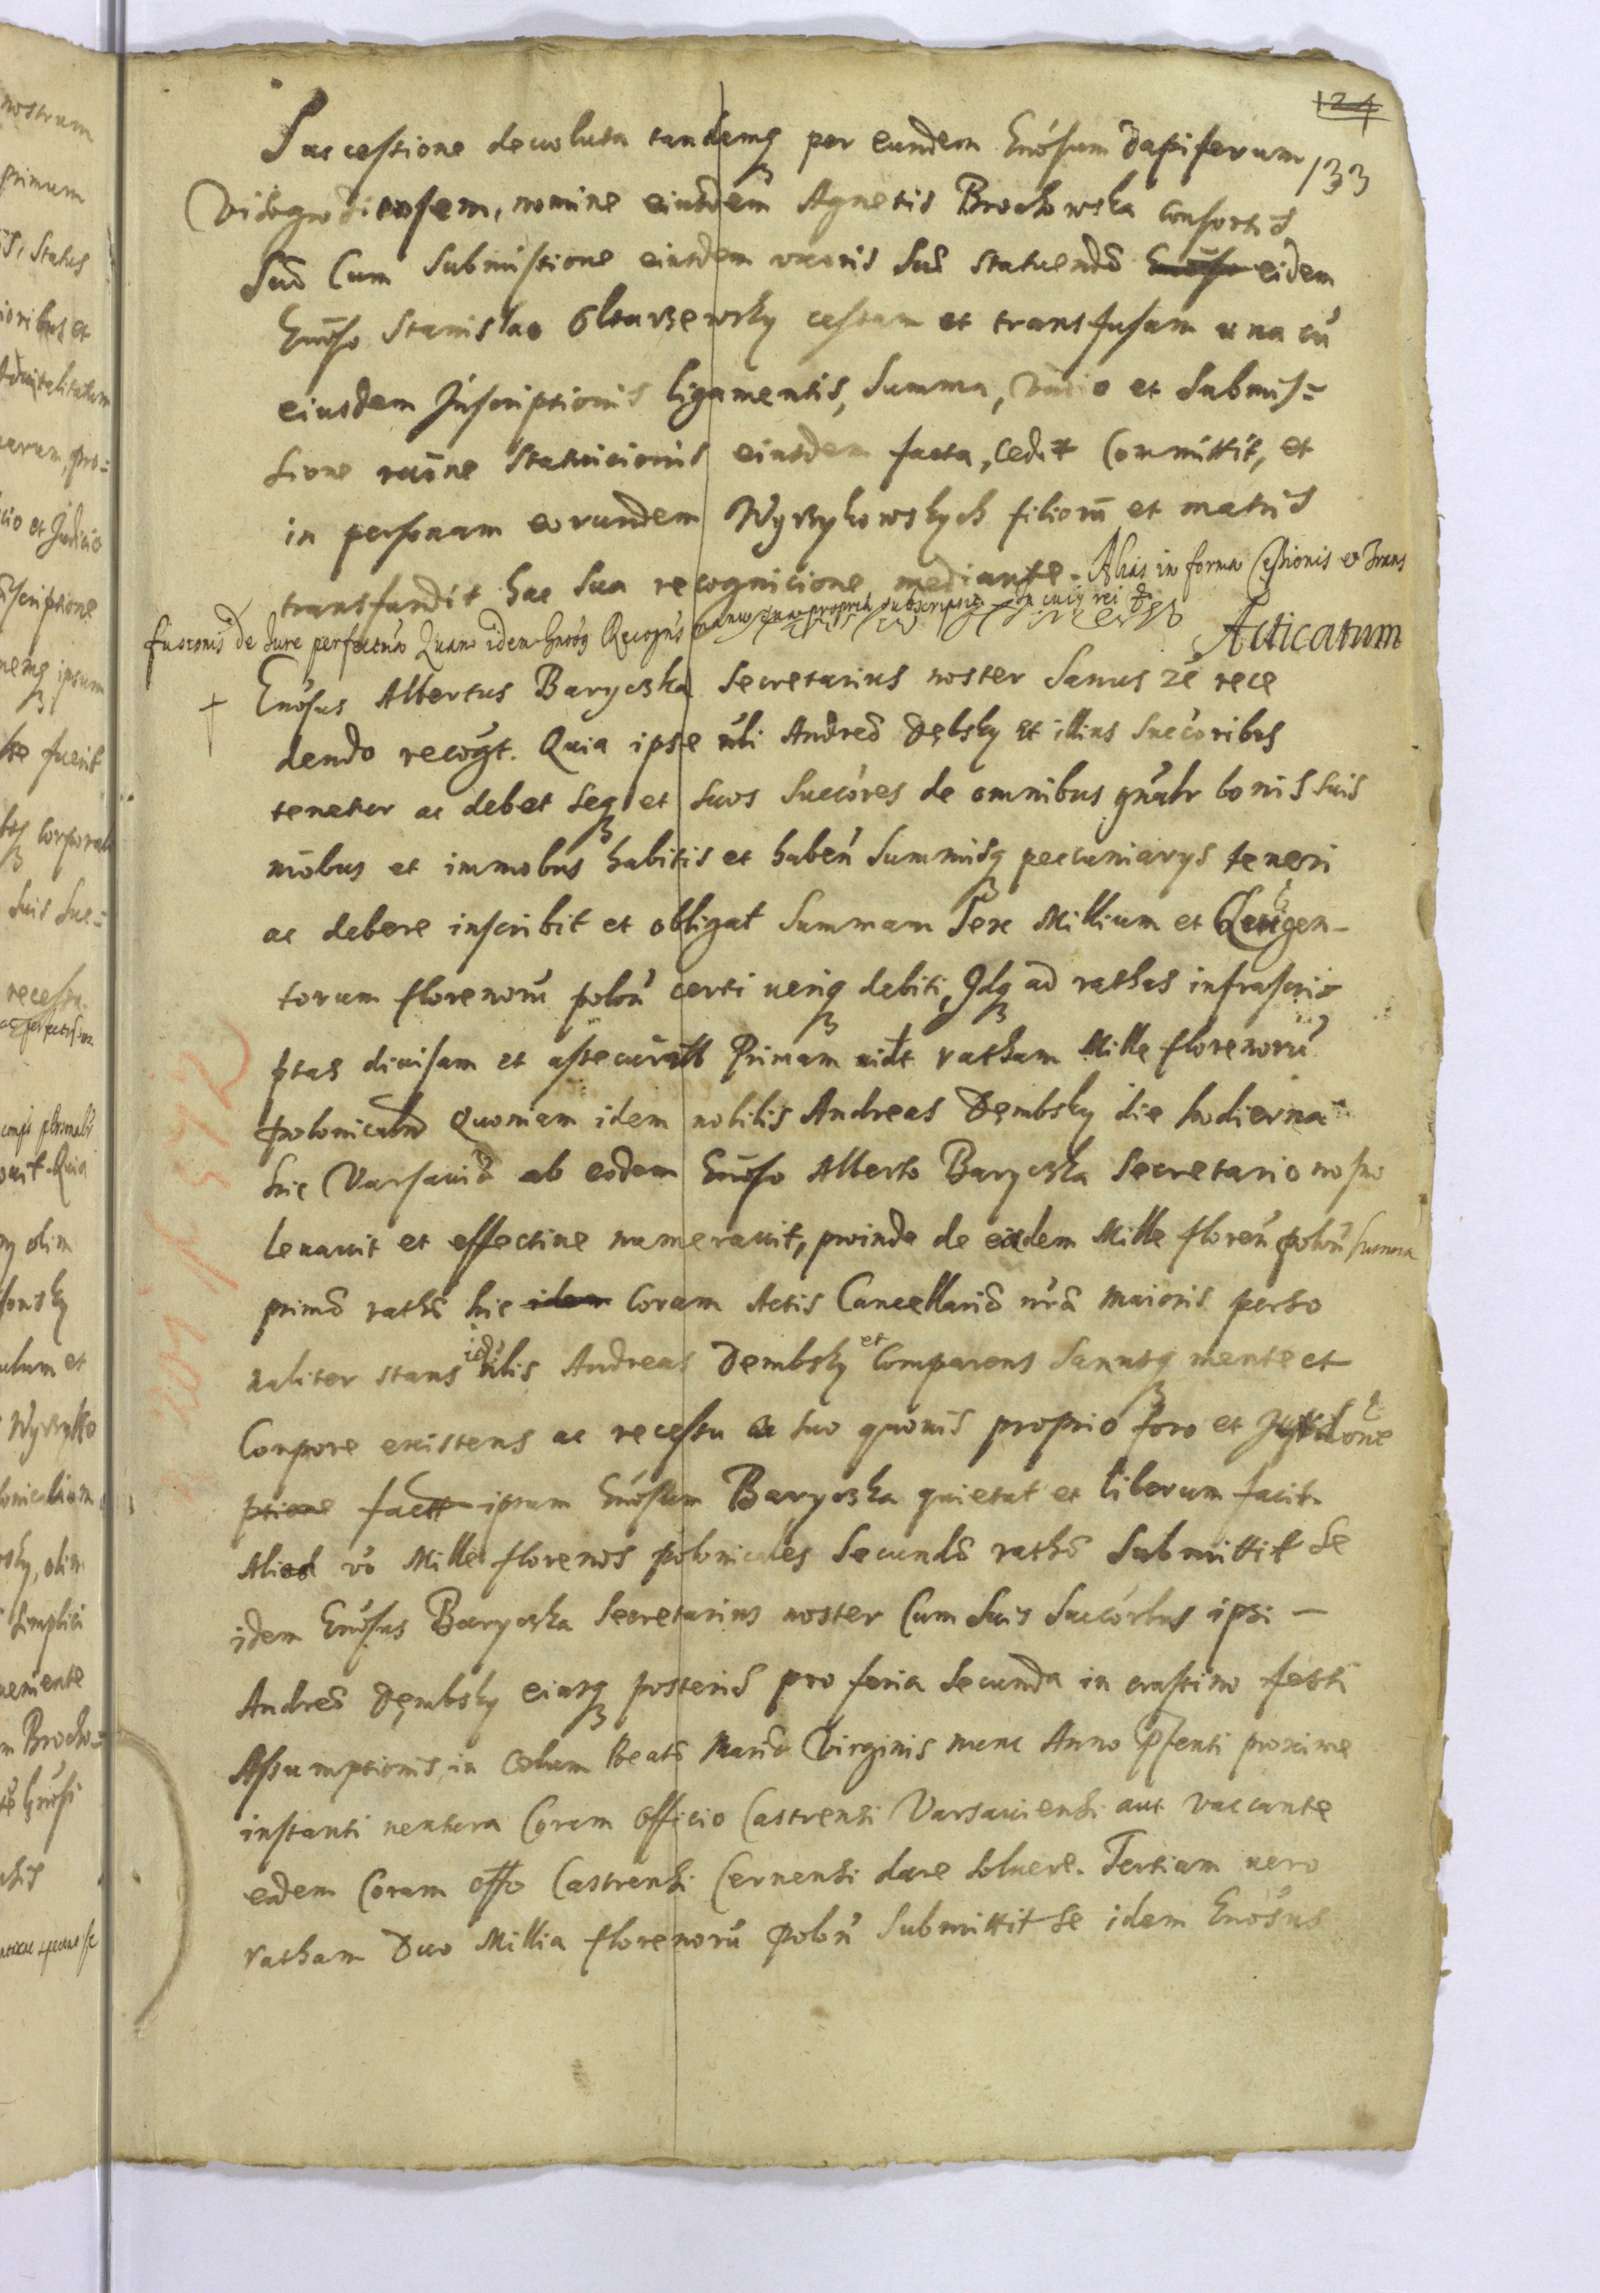 124
133
Successione devoluta tandemq per eundem Gnōsum dapiferum
Visogrodiensem, nomine eiusdem Agnetis Brochowska consortis
Suæ Cum Submissione eiusdem uxoris Suæ statuendæ Gnōso eidem
Gnōso Stanislao Oltarzewsky cessam et transfusam una cū
eiusdem Inscriptionis ligamentis, Summa, vadio et Submis=
sione rāōne statuicionis eiusdem facta, cedit Committit, et
in personam eorundem Wyrzykowskych filiorū et matris
transfundit hac sua recognicione mediante. Alias in forma Cessionis et Trans
fusionis de Iure perfectū Quam idem Gnōsq Recogns manu sua propria subscripsit in cuiq rei
Acticatum
+ Gnōsus Albertus Baryczka Secretarius noster Sanus zē rece
dendo recogt. Quia ipse nli Andreæ Dębsky et illius Succōribus
tenetur ac debet seq et suos Succōres de omnibus gnālr bonis suis
mōbus et immobus habitis et haben Summisq pecuniarys teneri
ac debere inscribit et obligat Summam Sex Millium et
torum florenorū polōn certi veriq debiti, Idq ad rathas infrascri
ptas divisam et assecurat Primam vidt ratham Mille florenorū
polonicaliū Quoniam idem nobilis Andreas Dembsky die hodierna
hic Varsaviæ ab eodem Gnōso Alberto Baryczka Secretario nostro
levavit et effective numeravit, proinde de eadem Mille florēn polōn summa
primæ rathæ hic idem Coram Actis Cancellariæ nræ maioris perso
naliter stans idē nlis Andreas Dembsky et Comparens Sanusq mente et
Corpore existens ac recessu a suo quovis proprio foro et
ptione fact ipsum Gnōsum Baryczka quietat et liberum facit.
Alios vō Mille florenos polonicales Secundæ rathæ Submittit se
idem Gnōsus Baryczka Secretarius noster Cum Suis Succōrbus ipsi –
Andreæ Dęmbsky eiusq posteris pro feria Secunda in crastino festi
Assumptionis in Cœlum Beatæ Mariæ Virginis nunc Anno pśenti proxime
instanti ventura Coram Officio Castrensi Varsaviensi aut vaccante
eodem Coram Offo Castrensi Cernensi dare Solvere. Tertiam vero
ratham Duo Millia florenorū polōn Submittit se idem Gnōsus